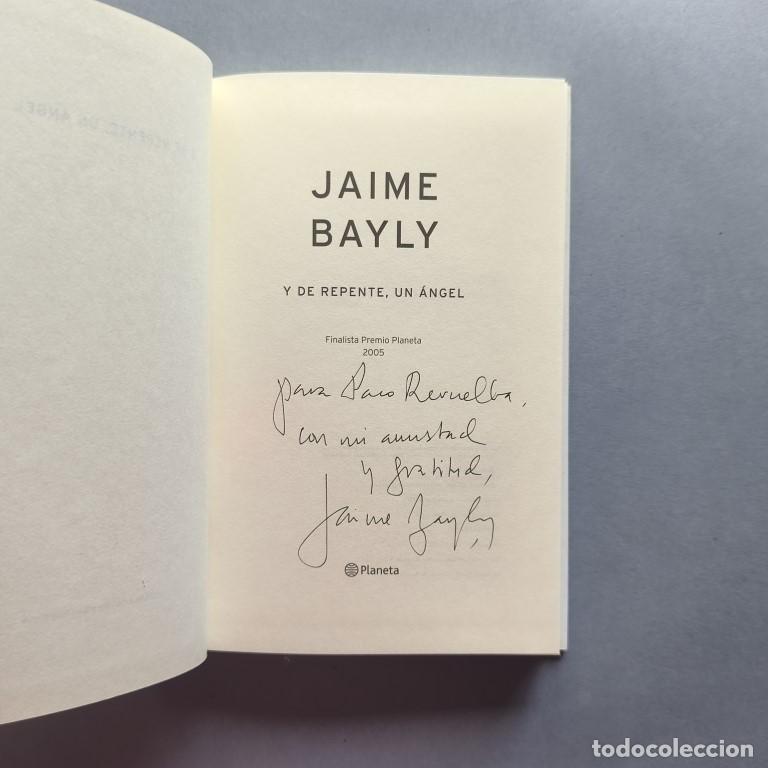 JAIME
BAYLY
Y DE REPENTE, UN ÁNGEL
Finalista Premio Planeta
2005
para Paco Revuelta,
con mi amistad
y gratitud,
Jaime Bayly
Planeta
todocoleccion